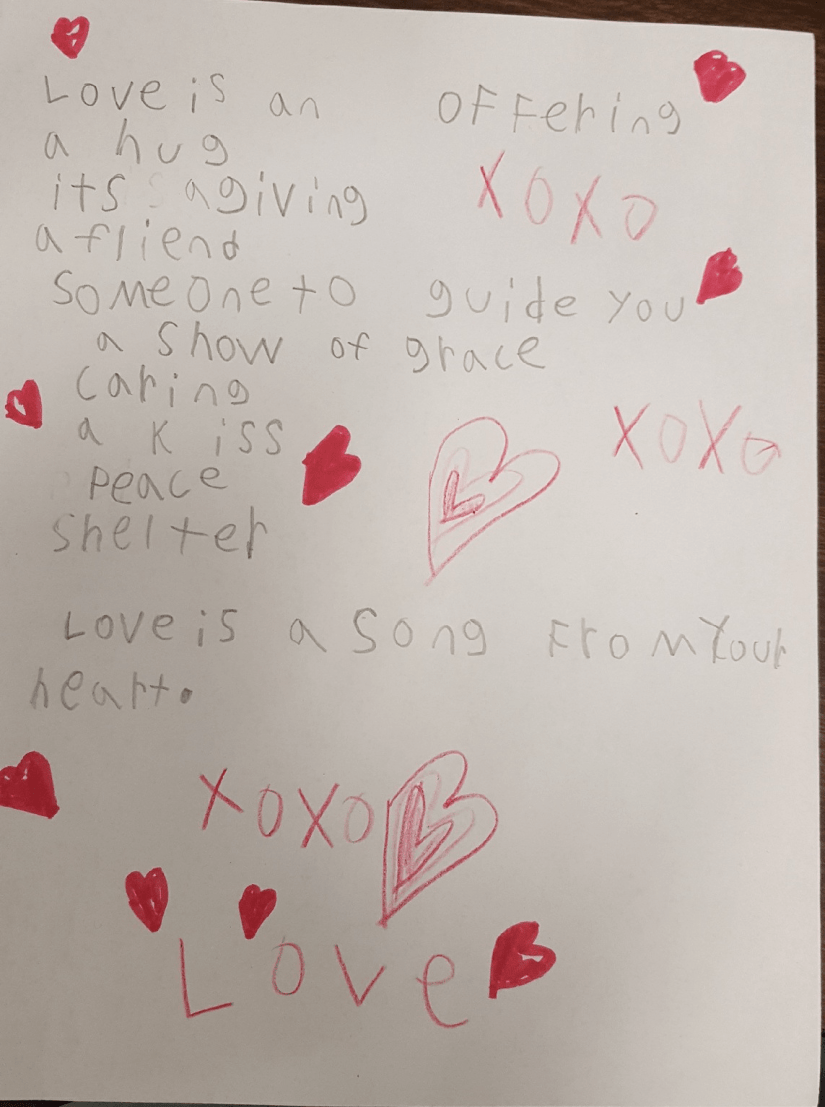 Love is an offering
a hug
its agiving
XOXO
a fliend
Someone to guide you
a show of grace
Caring
a kiss
XOXO
peace
shelter
Love is a song From Your
heart.
XOXO
Love